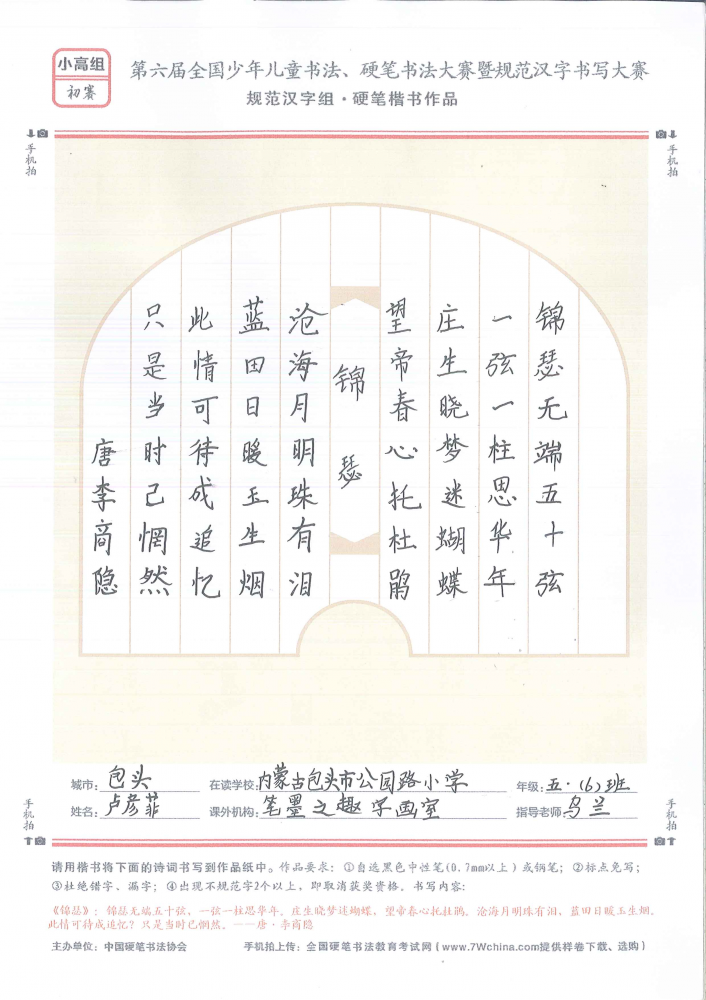 小高组
初赛
第六届全国少年儿童书法、硬笔书法大赛暨规范汉字书写大赛
规范汉字组·硬笔楷书作品
手机拍
手机拍
锦瑟无端五十弦
一弦一柱思华年
庄生晓梦迷蝴蝶
望帝春心托杜鹃
锦瑟
沧海月明珠有泪
蓝田日暖玉生烟
此情可待成追忆
只是当时已惘然
唐李商隐
城市：包头 在读学校：内蒙古包头市公园路小学 年级：五·(6)班
姓名：卢彦菲 课外机构：笔墨之趣字画室 指导老师：乌兰
手机拍
手机拍
请用楷书将下面的诗词书写到作品纸中。作品要求：①自选黑色中性笔(0.7mm以上)或钢笔；②标点免写；
③杜绝错字、漏字；④出现不规范字2个以上，即取消获奖资格。书写内容：
《锦瑟》：锦瑟无端五十弦，一弦一柱思华年。庄生晓梦迷蝴蝶，望帝春心托杜鹃。沧海月明珠有泪，蓝田日暖玉生烟。
此情可待成追忆？只是当时已惘然。——唐·李商隐
主办单位：中国硬笔书法协会 手机拍上传：全国硬笔书法教育考试网（www.7Wchina.com提供样卷下载、选购）